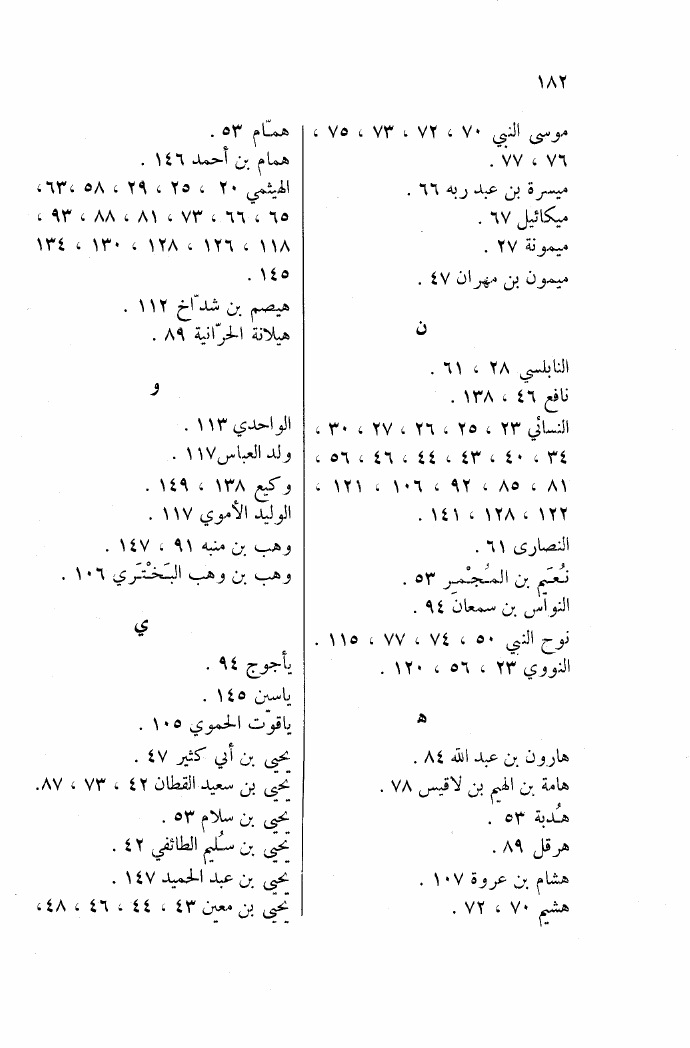 ١٨٢
موسى النبي ٧٠ ، ٧٢ ، ٧٣ ، ٧٥ ،
٧٦ ، ٧٧ .
ميسرة بن عبد ربه ٦٦ .
ميكائيل ٦٧ .
ميمونة ٢٧ .
ميمون بن مهران ٤٧ .
ن
النابلسي ٢٨ ، ٦١ .
نافع ٤٦ ، ١٣٨ .
النسائي ٢٣ ، ٢٥ ، ٢٦ ، ٢٧ ، ٣٠ ،
٣٤ ، ٤٠ ، ٤٣ ، ٤٤ ، ٤٦ ، ٥٦ ،
٨١ ، ٨٥ ، ٩٢ ، ١٠٦ ، ١٢١ ،
١٢٢ ، ١٢٨ ، ١٤١ .
النصارى ٦١ .
نُعَيم بن المُجْمِر ٥٣ .
النواس بن سمعان ٩٤ .
نوح النبي ٥٠ ، ٧٤ ، ٧٧ ، ١١٥ .
النووي ٢٣ ، ٥٦ ، ١٢٠ .
ه
هارون بن عبد الله ٨٤ .
هامة بن الهيم بن لاقيس ٧٨ .
هُدبة ٥٣ .
هرقل ٨٩ .
هشام بن عروة ١٠٧ .
هشيم ٧٠ ، ٧٢ .
همّام ٥٣ .
همام بن أحمد ١٤٦ .
الهيثمي ٢٠ ، ٢٥ ، ٢٩ ، ٥٨ ،٦٣،
٦٥ ، ٦٦ ، ٧٣ ، ٨١ ، ٨٨ ، ٩٣ ،
١١٨ ، ١٢٦ ، ١٢٨ ، ١٣٠ ، ١٣٤
١٤٥ .
هيصم بن شدّاخ ١١٢ .
هيلانة الحرّانية ٨٩ .
و
الواحدي ١١٣ .
ولد العباس١١٧ .
وكيع ١٣٨ ، ١٤٩ .
الوليد الأموي ١١٧ .
وهب بن منبه ٩١ ، ١٤٧ .
وهب بن وهب البَخْتَري ١٠٦ .
ي
يأجوج ٩٤ .
ياسين ١٤٥ .
ياقوت الحموي ١٠٥ .
يحيى بن أبي كثير ٤٧ .
يحيى بن سعيد القطان ٤٢ ، ٧٣ ، ٨٧.
يحيى بن سلام ٥٣ .
يحيى بن سُليم الطائفي ٤٢ .
يحيى بن عبد الحميد ١٤٧ .
يحيى بن معين ٤٣ ، ٤٤ ، ٤٦ ، ٤٨،